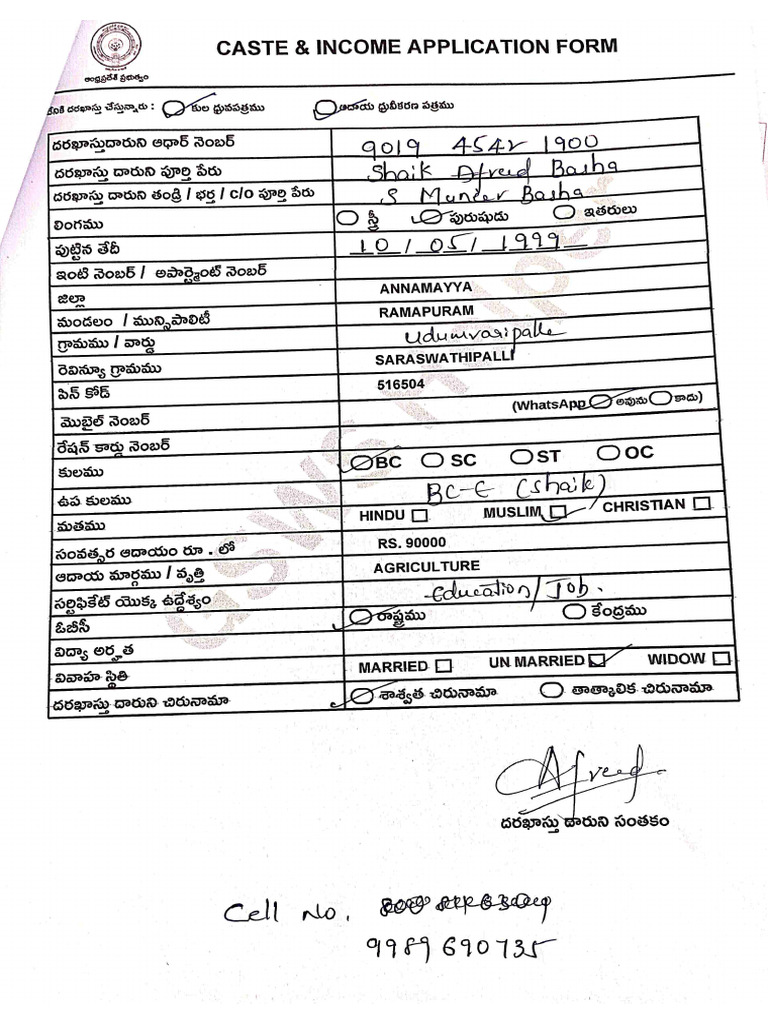 CASTE & INCOME APPLICATION FORM
ఆంధ్రప్రదేశ్ ప్రభుత్వం
దేనికి దరఖాస్తు చేస్తున్నారు : కుల ధ్రువపత్రము ఆదాయ ధ్రువీకరణ పత్రము
దరఖాస్తుదారుని ఆధార్ నెంబర్ 9019 4542 1900
దరఖాస్తు దారుని పూర్తి పేరు Shaik Afreed Basha
దరఖాస్తు దారుని తండ్రి / భర్త / c/o పూర్తి పేరు S Muneer Basha
లింగము స్త్రీ పురుషుడు ఇతరులు
పుట్టిన తేదీ 10/05/1999
ఇంటి నెంబర్ / అపార్ట్మెంట్ నెంబర్
జిల్లా ANNAMAYYA
మండలం / మున్సిపాలిటీ RAMAPURAM
గ్రామము / వార్డు Udumvaripalle
రెవిన్యూ గ్రామము SARASWATHIPALLI
పిన్ కోడ్ 516504
మొబైల్ నెంబర్ (WhatsApp అవును కాదు)
రేషన్ కార్డు నెంబర్
కులము BC SC ST OC
ఉప కులము BC-E (Shaik)
మతము HINDU MUSLIM CHRISTIAN
సంవత్సర ఆదాయం రూ . లో RS. 90000
ఆదాయ మార్గము / వృత్తి AGRICULTURE
సర్టిఫికేట్ యొక్క ఉద్దేశ్యం Education/Job.
ఓబీసీ రాష్ట్రము కేంద్రము
విద్యా అర్హత
వివాహ స్థితి MARRIED UN MARRIED WIDOW
దరఖాస్తు దారుని చిరునామా శాశ్వత చిరునామా తాత్కాలిక చిరునామా
Afreed
దరఖాస్తు దారుని సంతకం
Cell No.
9989690735